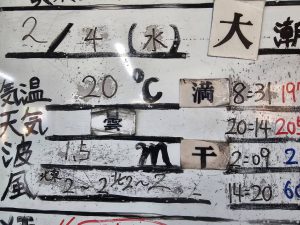 2/4(水) 大潮
気温 20℃ 満 8=31 197
天気 曇 20=14 205
波 1.5 m 干 2=09 2
風 北東2~2北2~2 14=20 60